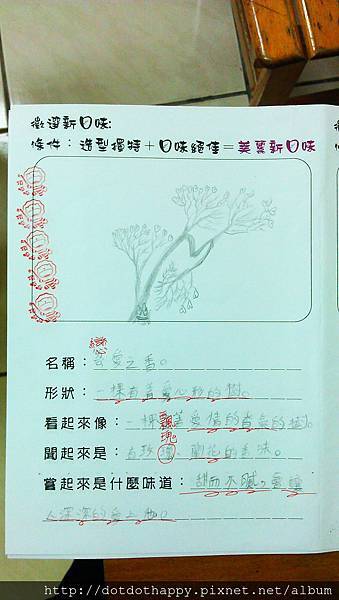 徵選新口味:
條件：造型獨特＋口味絕佳＝美裏新口味
戀
名稱：愛之香。
形狀：一棵有著愛心形的樹。
飄
看起來像：一棵著愛情的香氣的樹。
瑰
聞起來是：有玫、蘭花的香味。
嘗起來是什麼味道：甜而不膩，會讓
人深深的愛上他。
http://dotdothappy.pixnet.net/album